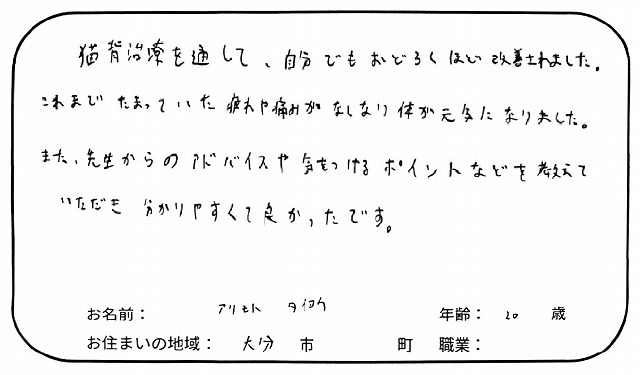 猫背治療を通して、自分でもおどろくほど改善されました。
これまで たまっていた 疲れや痛みが なくなり 体が 元気に なりました。
また、先生からの アドバイスや 気をつける ポイントなどを 教えて
いただき 分かりやすくて良かったです。
お名前： アリモト
年齢： 20 歳
お住まいの地域： 大分 市 町 職業：